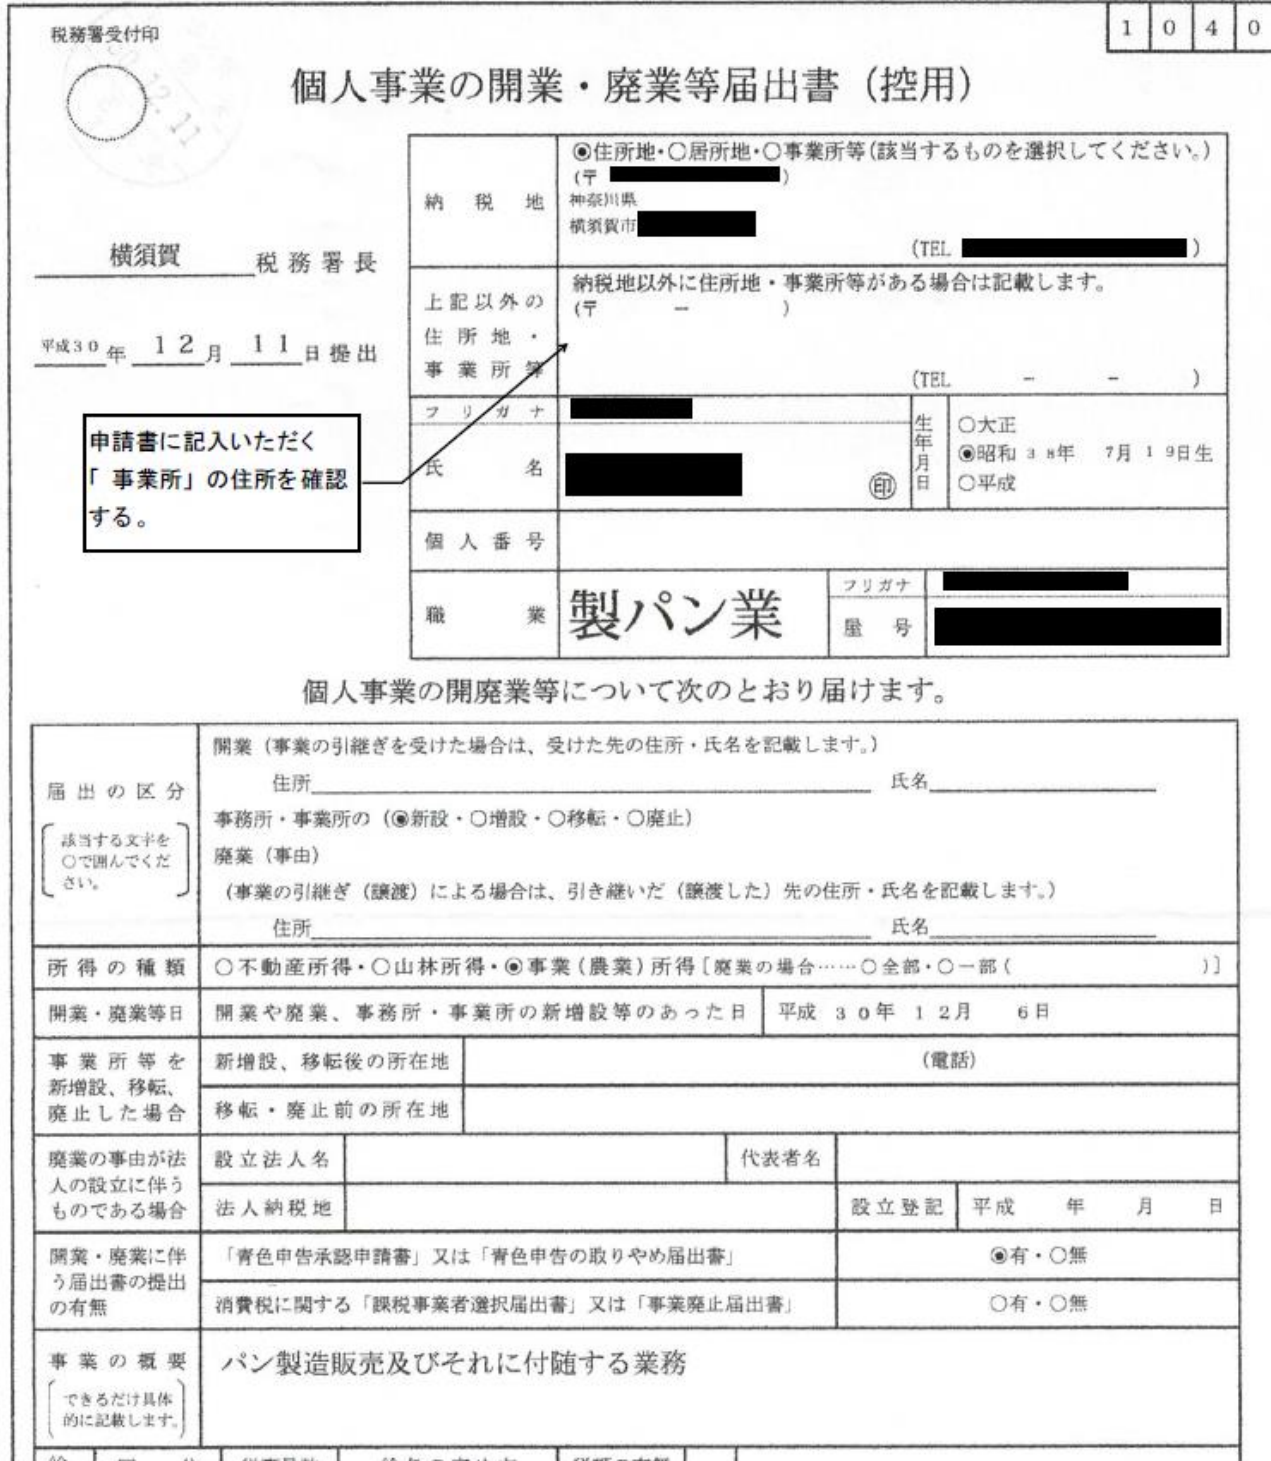 税務署受付印
1040
30.12.11
個人事業の開業・廃業等届出書（控用）
横須賀 税務署長
平成30年 12月 11日提出
申請書に記入いただく
「 事業所」の住所を確認
する。
納税地
◉住所地・○居所地・○事業所等(該当するものを選択してください。)
(〒 )
神奈川県
横須賀市
(TEL )
上記以外の
住所地・
事業所等
納税地以外に住所地・事業所等がある場合は記載します。
(〒 － )
(TEL － － )
フリガナ
氏名
㊞
生年月日
○大正
◉昭和 38年 7月19日生
○平成
個人番号
職業
製パン業
フリガナ
屋号
個人事業の開廃業等について次のとおり届けます。
届出の区分
該当する文字を
○で囲んでくだ
さい。
開業（事業の引継ぎを受けた場合は、受けた先の住所・氏名を記載します。）
住所 氏名
事務所・事業所の（◉新設・○増設・○移転・○廃止）
廃業（事由）
（事業の引継ぎ（譲渡）による場合は、引き継いだ（譲渡した）先の住所・氏名を記載します。）
住所 氏名
所得の種類
○不動産所得・○山林所得・◉事業(農業)所得[廃業の場合……○全部・○一部( )]
開業・廃業等日
開業や廃業、事務所・事業所の新増設等のあった日
平成 30年 12月 6日
事業所等を
新増設、移転、
廃止した場合
新増設、移転後の所在地
(電話)
移転・廃止前の所在地
廃業の事由が法
人の設立に伴う
ものである場合
設立法人名
代表者名
法人納税地
設立登記
平成 年 月 日
開業・廃業に伴
う届出書の提出
の有無
「青色申告承認申請書」又は「青色申告の取りやめ届出書」
◉有・○無
消費税に関する「課税事業者選択届出書」又は「事業廃止届出書」
○有・○無
事業の概要
できるだけ具体
的に記載します。
パン製造販売及びそれに付随する業務